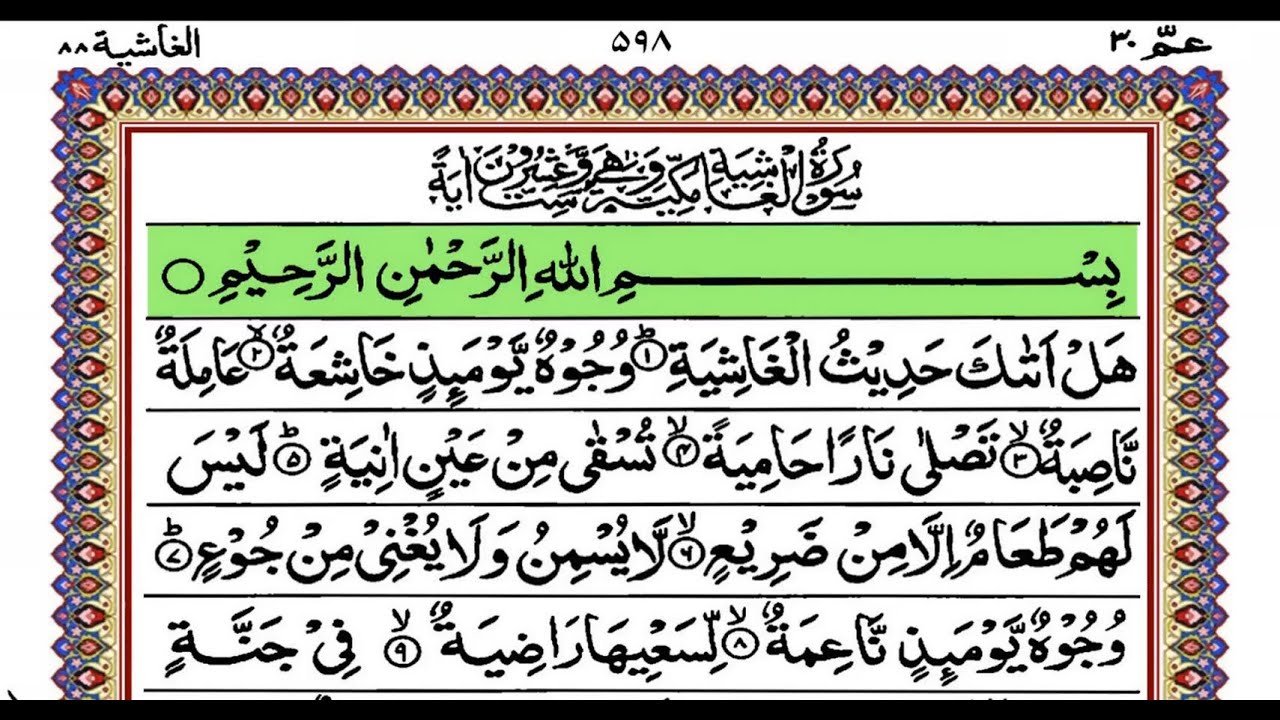 عمّ ٣٠
٥٩٨
الغاشية ٨٨
سُوْرَةُ الْغَاشِيَةِ مَكِّيَّةٌ وَّهِيَ سِتٌّ وَّعِشْرُوْنَ اٰيَةً
بِسْمِ اللّٰهِ الرَّحْمٰنِ الرَّحِيْمِ ○
هَلْ اَتٰىكَ حَدِيْثُ الْغَاشِيَةِ ؕ﴿۱﴾ وُجُوْهٌ يَّوْمَىِٕذٍ خَاشِعَةٌ ۙ﴿۲﴾ عَامِلَةٌ
نَّاصِبَةٌ ۙ﴿۳﴾ تَصْلٰى نَارًا حَامِيَةً ۙ﴿۴﴾ تُسْقٰى مِنْ عَيْنٍ اٰنِيَةٍ ؕ﴿۵﴾ لَيْسَ
لَهُمْ طَعَامٌ اِلَّا مِنْ ضَرِيْعٍ ۙ﴿۶﴾ لَّا يُسْمِنُ وَلَا يُغْنِىْ مِنْ جُوْعٍ ؕ﴿۷﴾
وُجُوْهٌ يَّوْمَىِٕذٍ نَّاعِمَةٌ ۙ﴿۸﴾ لِّسَعْيِهَا رَاضِيَةٌ ۙ﴿۹﴾ فِىْ جَنَّةٍ